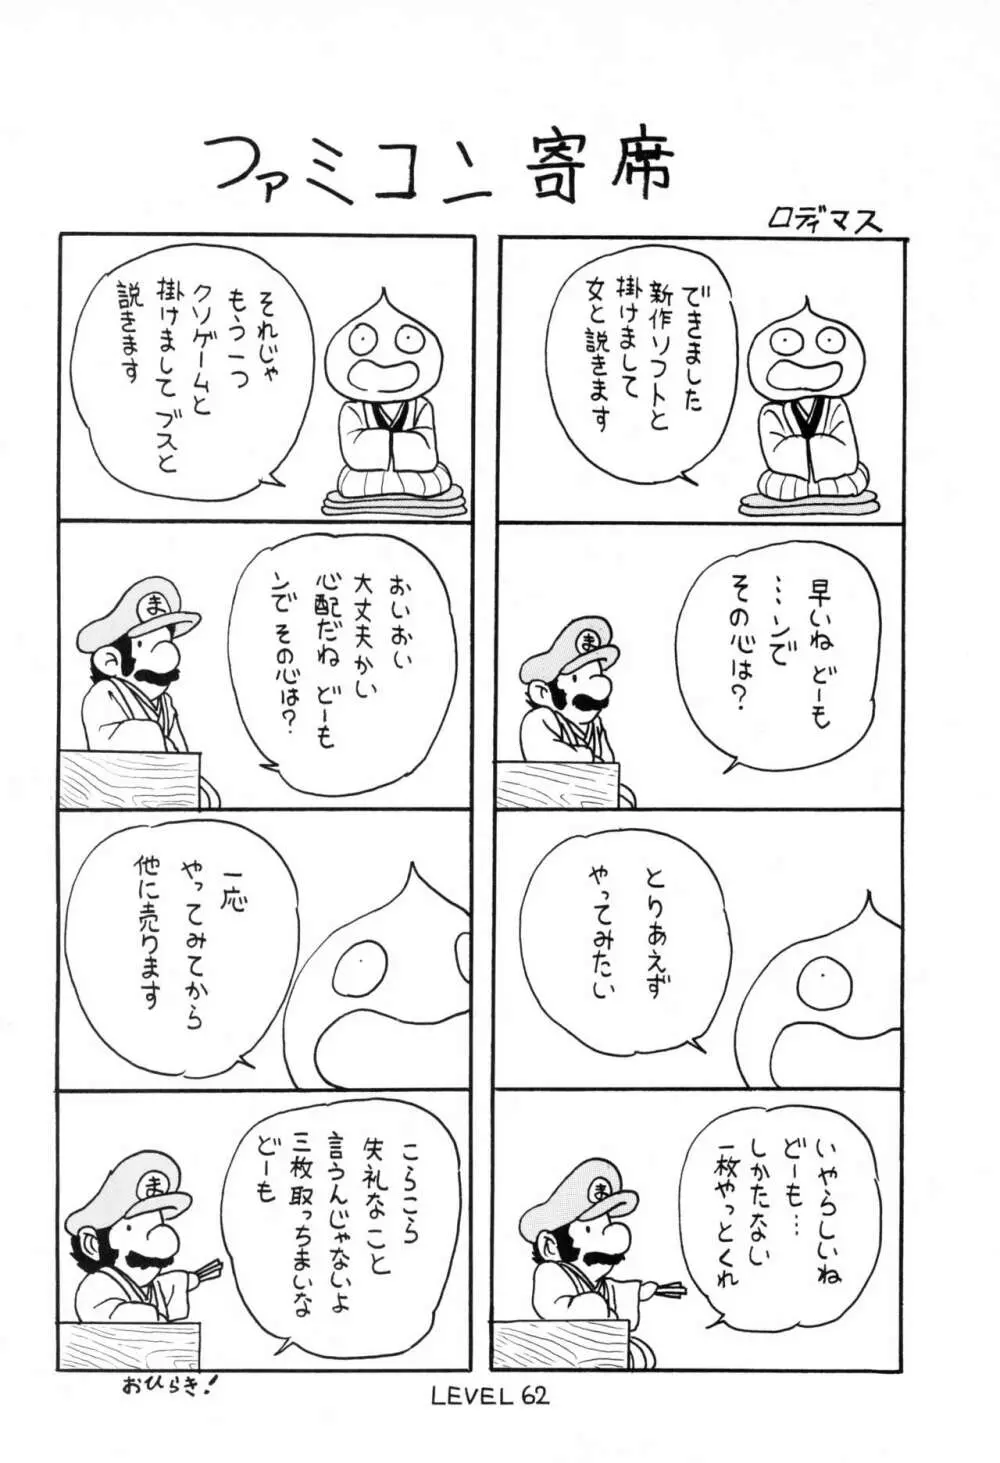 ファミコン寄席
ロディマス
できました
新作ソフトと
掛けまして
女と説きます
早いね どーも
…ンで
その心は?
ま
とりあえず
やってみたい
いやらしいね
どーも…
しかたない
一枚やっとくれ
ま
それじゃ
もう一つ
クソゲームと
掛けまして ブスと
説きます
おいおい
大丈夫かい
心配だね どーも
ンで その心は?
ま
一応
やってみてから
他に売ります
こらこら
失礼なこと
言うんじゃないよ
三枚取っちまいな
どーも
ま
おひらき!
LEVEL 62